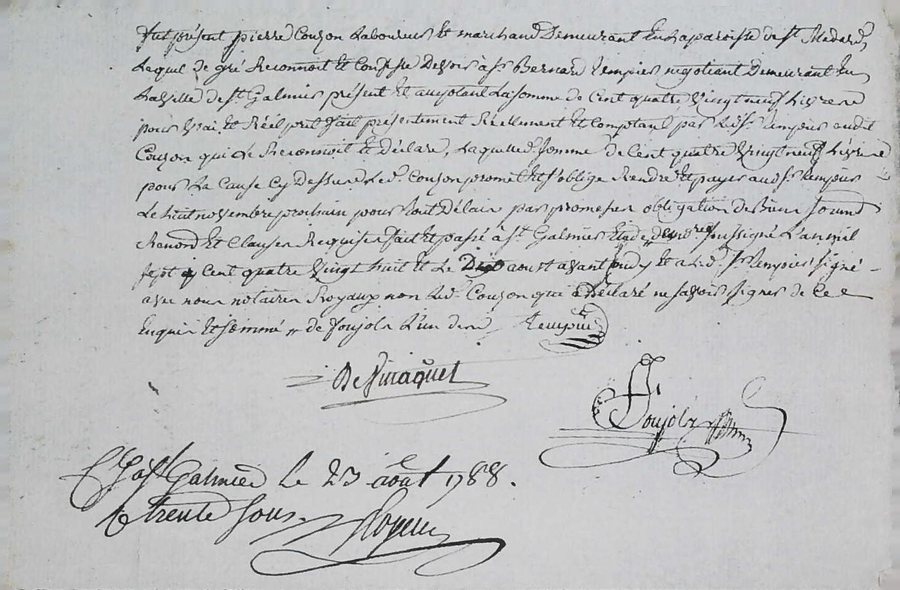 fut présent pierre Couzon Laboureur Et marchand Demeurant En La paroisse de St. Medard,
Lequel de gré Reconnoit Et Confesse Devoir a Sr. Bernard négotiant Demeurant En
La ville de St. Galmier présent Et acceptant La somme de Cent quatre Vingt neuf Livres
pour Vrai Et Réél prêt fait présentement Réellement Et Comptant par Led. Sr. audit
Couzon qui Le Reconnoit Et Déclare, Laquelle somme de Cent quatre Vingt neuf Livres
pour La Cause Cy Dessus Led. Couzon promet Et s'oblige Rendre Et payer aud. Sr.
Le huit novembre prochain pour tout Délai par promesse obligation de Biens soumn
Renond Et Clauses Requises fait Et passé à St. Galmier Etude Des nores. soussigné L'an mil
sept Cent quatre Vingt huit Et Le Dix aoust avant midy Et a Led. Sr. signé
avec nous notaires Royaux non Led. Couzon qui a Déclaré ne savoir signer de Ce
Enquis Et sommé de Soujols L'un d'eux
Soujols
C. à St. Galmier le 23 août 1788.
trente sous